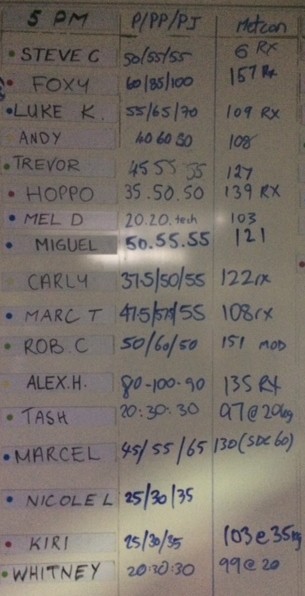 5 PM P/PP/PJ Metcon
STEVE C 50/55/55 6 RX
FOXY 60/85/100 157 RX
LUKE K. 55/65/70 109 RX
ANDY 40 60 50 108
TREVOR 45 55 55 127
HOPPO 35.50.50 139 RX
MEL D 20.20.tech 103
MIGUEL 50.55.55 121
CARLY 37.5/50/55 122rx
MARC T 47.5/ /55 108rx
ROB C 50/60/50 151 MOD
ALEX.H. 80-100-90 135 RX
TASH 20:30:30 97@20kg
MARCEL 45/55/65 130(SDC60)
NICOLE L 25/30/35
KIRI 25/30/35 103@35kg
WHITNEY 20:30:30 99@20